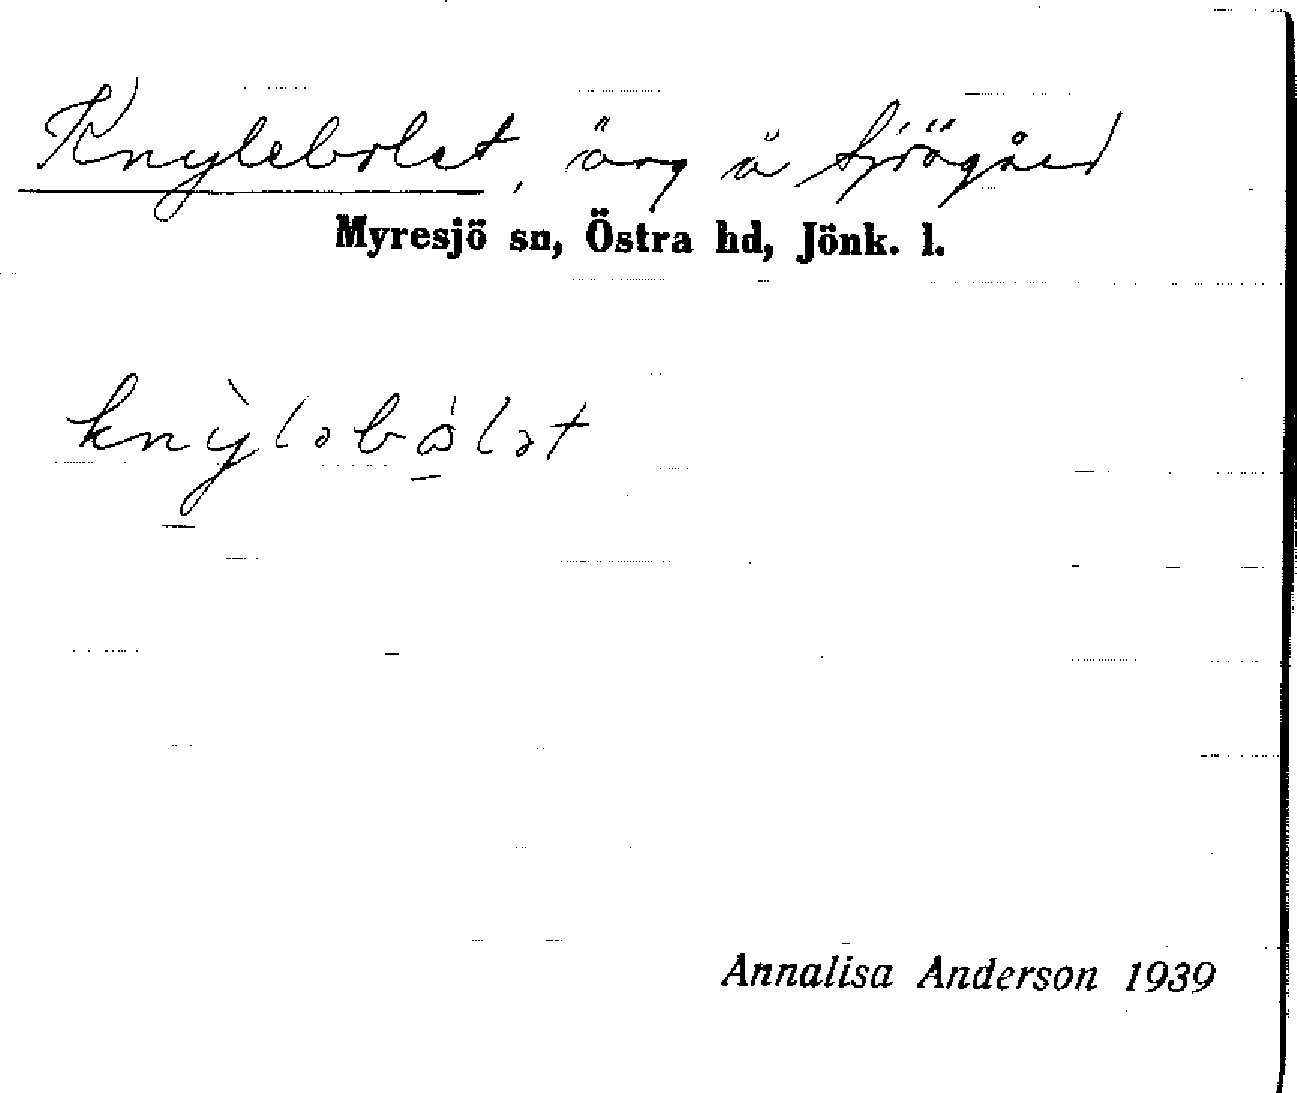 Knylebolet, äng å Sjögård
Myresjö sn, Östra hd, Jönk. l.
knỳləbålət
Annalisa Anderson 1939